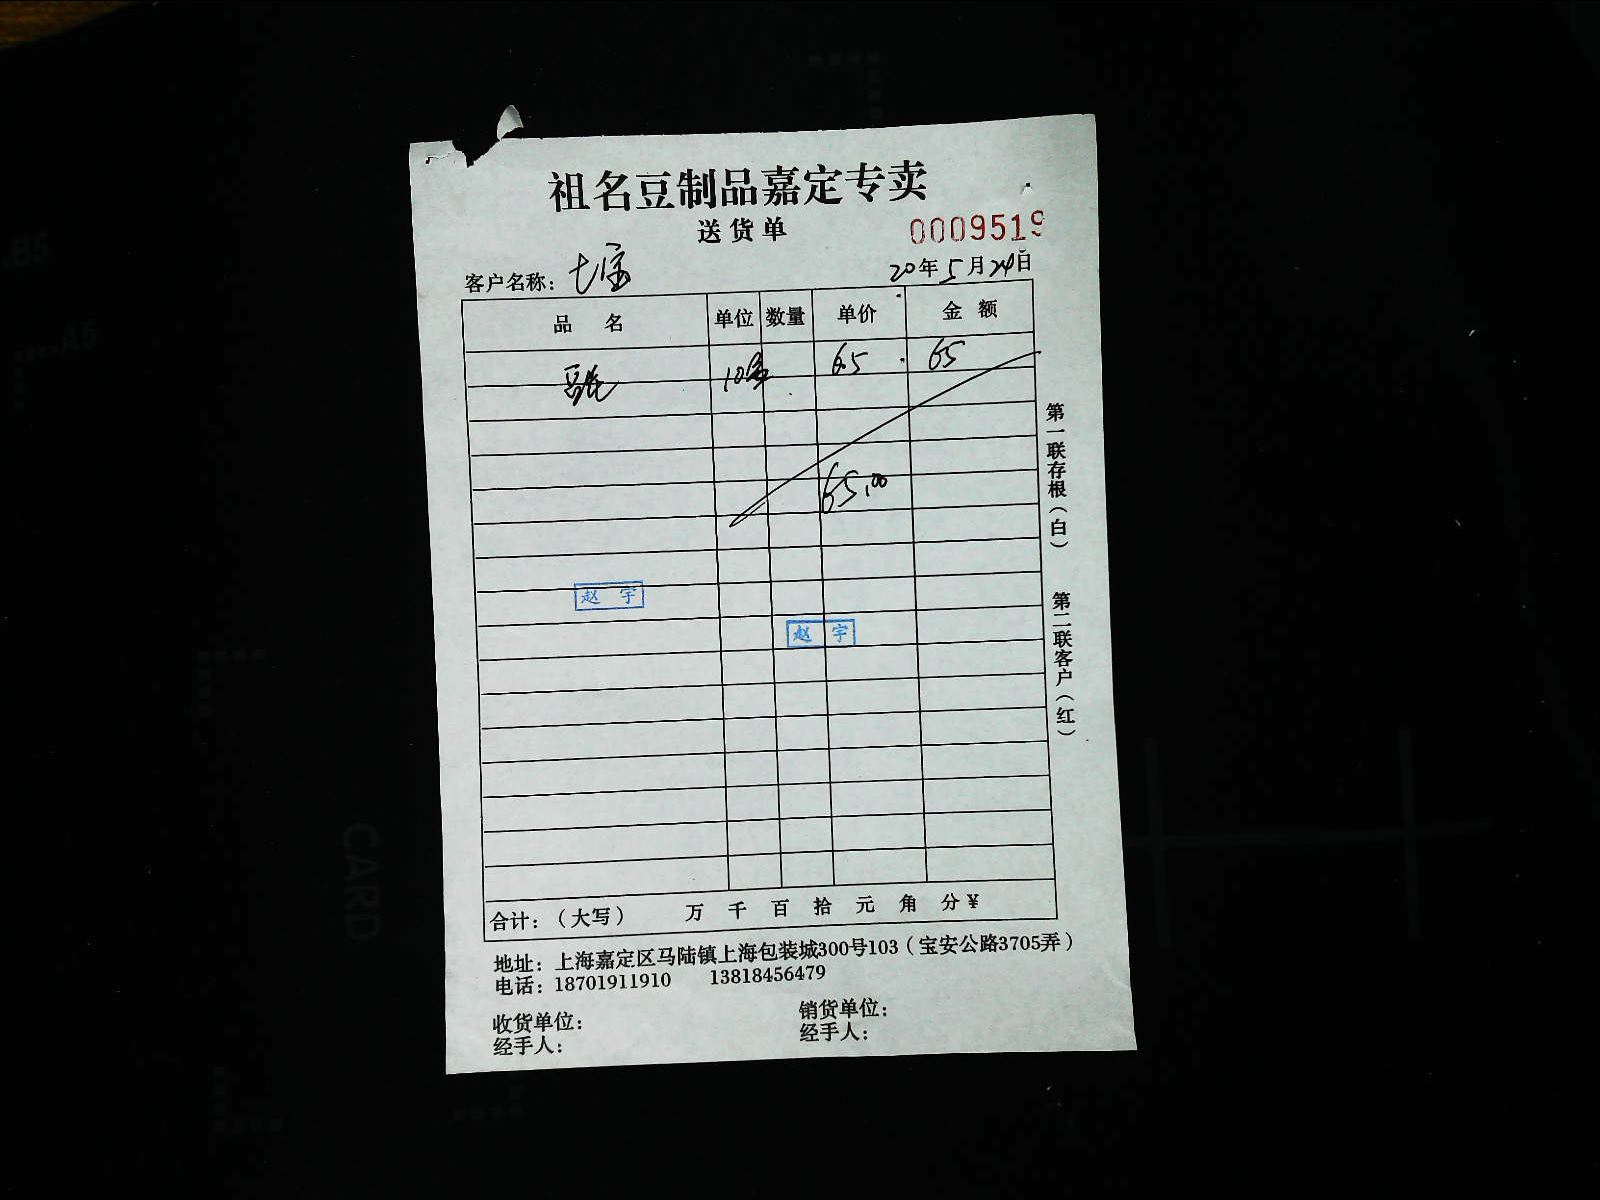 祖名豆制品嘉定专卖
送货单
0009519
客户名称：七宝
20年5月24日
品 名 单位 数量 单价 金 额
10 6.5 65
65.00
赵 宇
赵 宇
合计：（大写） 万 千 百 拾 元 角 分￥
地址：上海嘉定区马陆镇上海包装城300号103（宝安公路3705弄）
电话：18701911910 13818456479
收货单位：
销货单位：
经手人：
经手人：
第一联存根（白）
第二联客户（红）
B5
A5
CARD